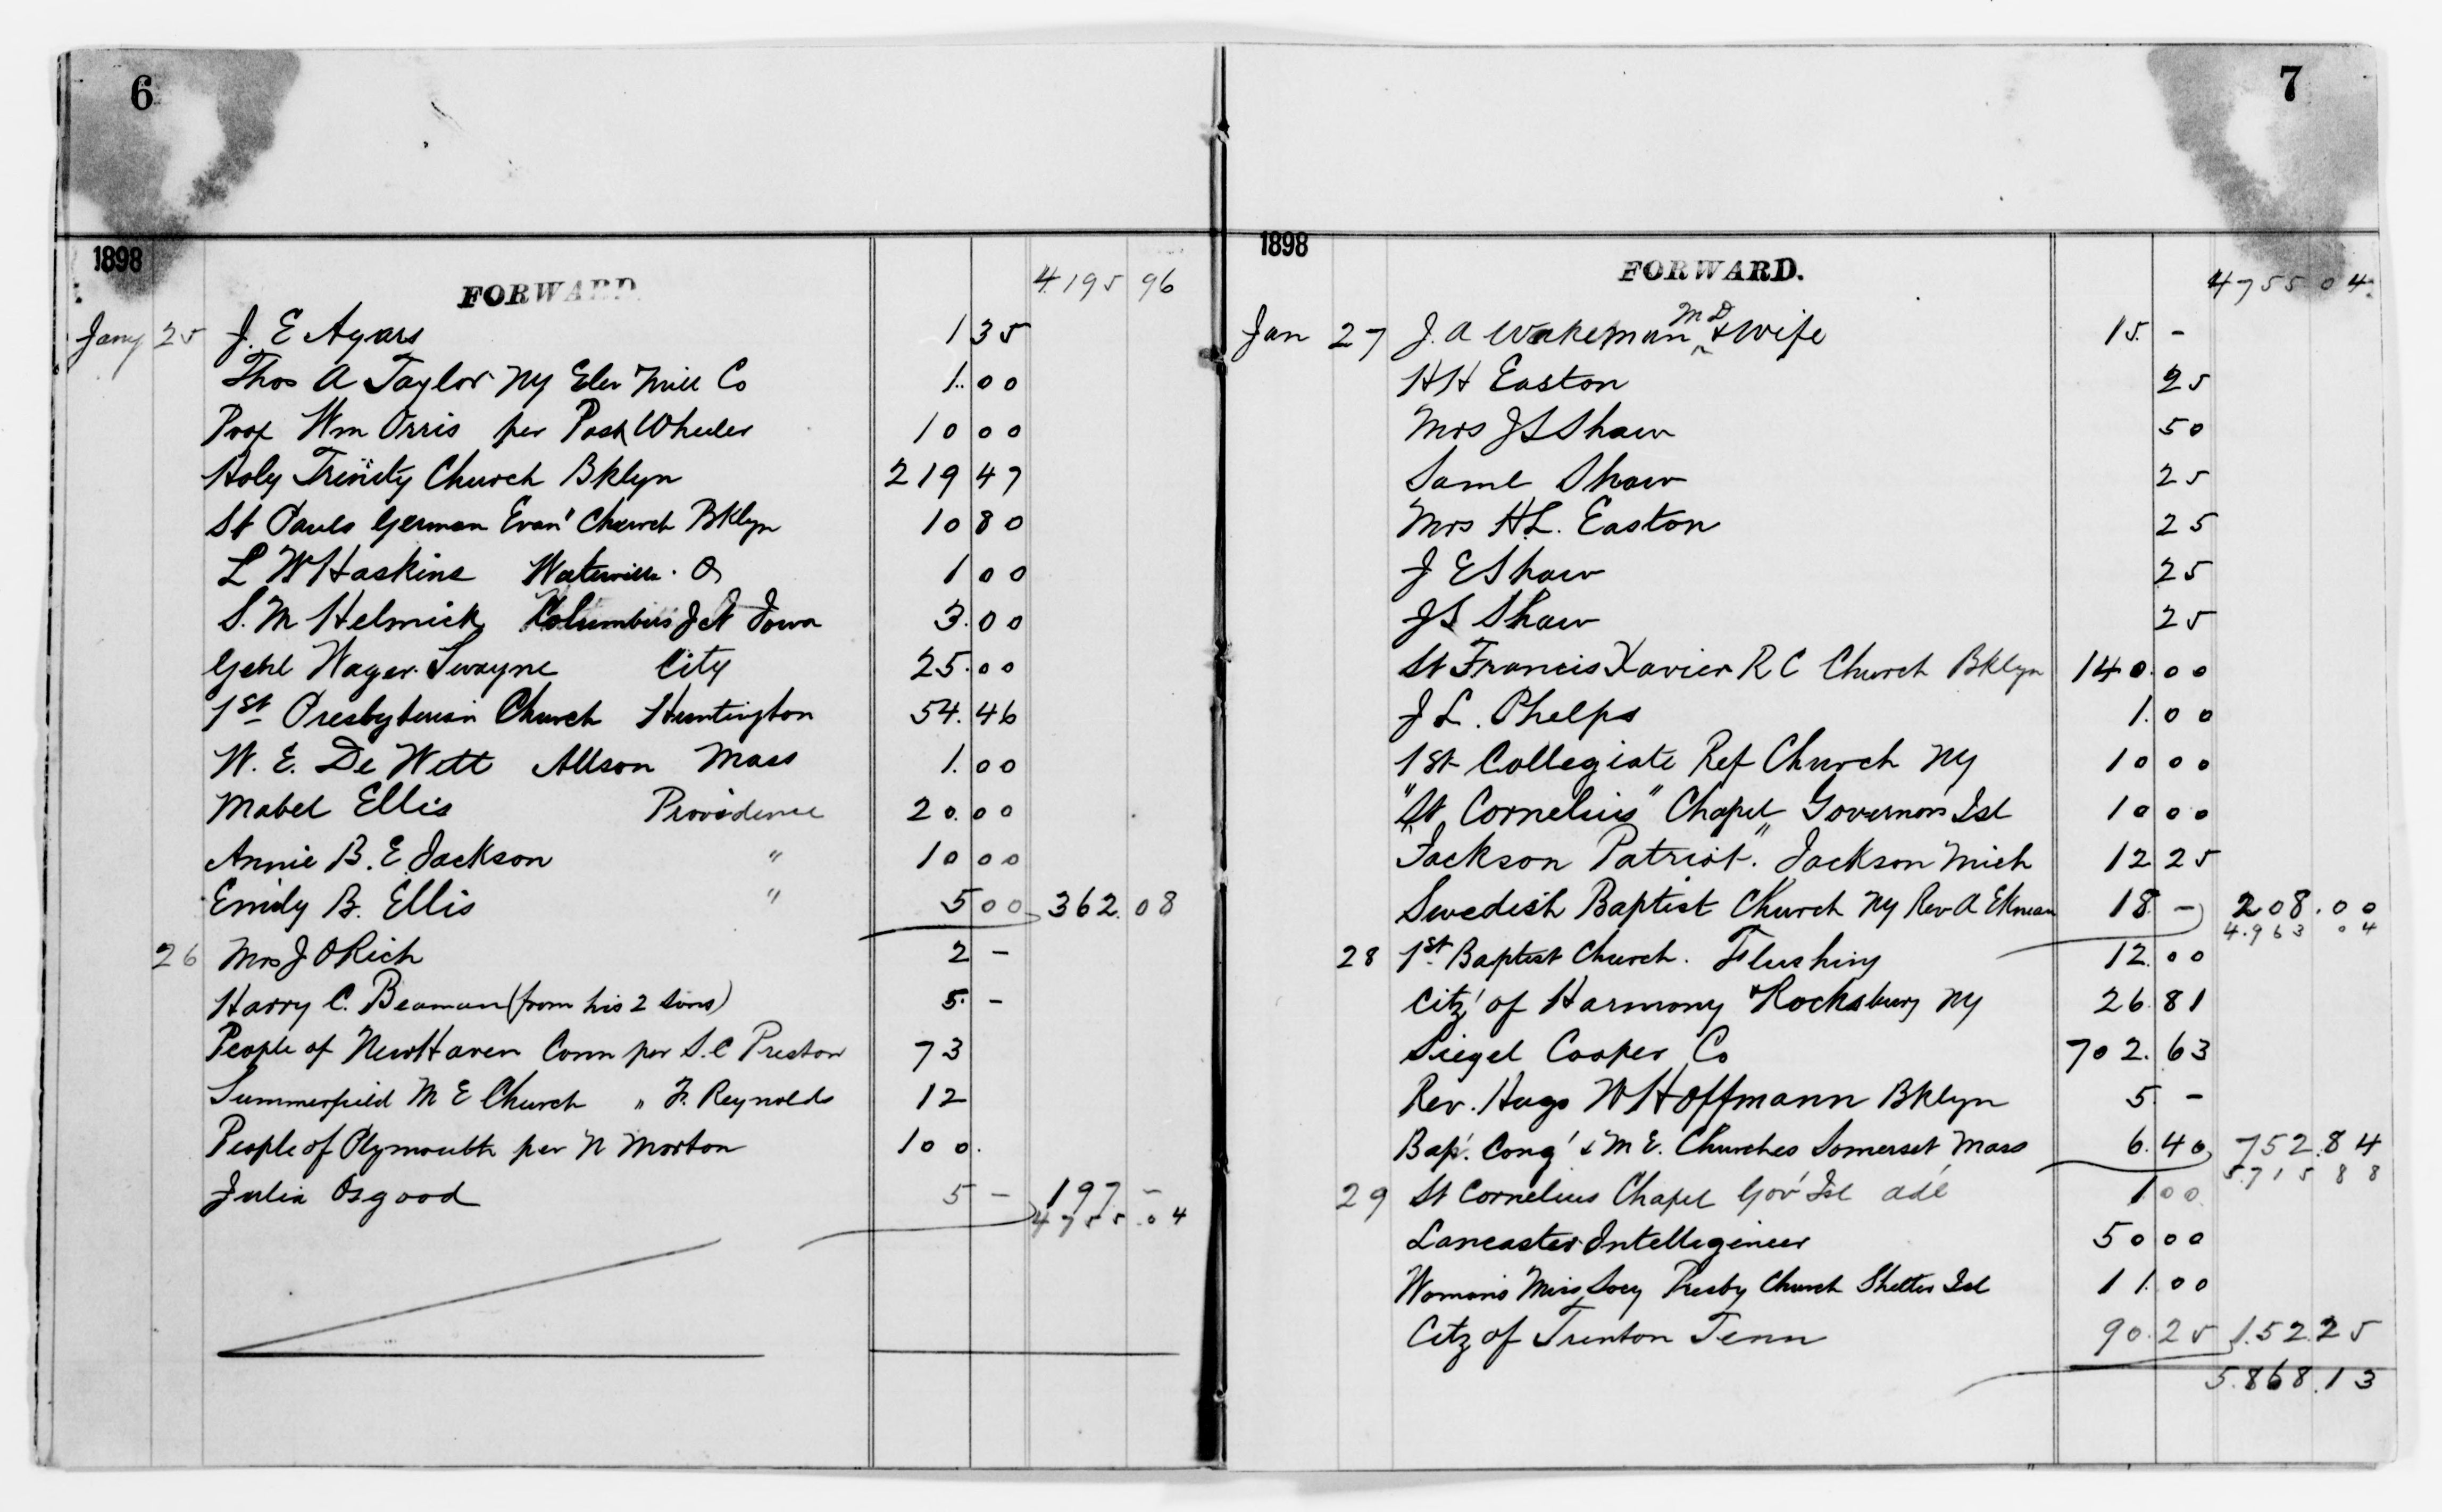 6
1898
FORWARD 4.195 96
Jany 25 J. E Ayars 1 35
Thos A Taylor NY Elev Mill Co 1.00
Prof Wm Orris per Past Wheeler 10 00
Holy Trinity Church Bklyn 219 47
St Pauls German Evan' Church Bklyn 10 80
L W Haskins Waterville. O 1 00
S. M Helmick Columbus Jct Iowa 3.00
Genl Wager Swayne City 25.00
1st Presbyterian Church Huntington 54.46
W. E. De Witt Allson Mass 1.00
Mabel Ellis Providence 20.00
Annie B. E. Jackson " 10 00
Emily B. Ellis " 5 00 362.08
26 Mrs J O Rich 2 -
Harry C. Beaman (from his 2 sons) 5. -
People of New Haven Conn per S. C Preston 73
Summerfield M E Church " F. Reynolds 12
People of Plymouth per N Morton 100.
Julia Osgood 5 - 197. -
4755.04
7
1898
FORWARD. 4755 04
Jan 27 J. A Wakeman MD & Wife 15. -
H H Easton 25
Mrs J S Shaw 50
Saml Shaw 25
Mrs H. L. Easton 25
J E Shaw 25
J S Shaw 25
St Francis Xavier R C Church Bklyn 140.00
J L. Phelps 1.00
1st Collegiate Ref Church NY 10 00
"St Cornelius" Chapel Governors Isl 10 00
"Jackson Patriot". Jackson Mich 12 25
Swedish Baptist Church NY Rev A Ekman 18 - 208.00
4.963 04
28 1st Baptist Church. Flushing 12.00
Citz' of Harmony & Rocksbury NY 26.81
Siegel Cooper Co 702.63
Rev. Hugo W Hoffmann Bklyn 5. -
Bap'. Cong' & M E. Churches Somerset Mass 6.40 752.84
5.715 88
29 St Cornelius Chapel Gov' Isl adl 1.00
Lancaster Intelligencer 50 00
Womans Miss Socy Presby Church Shelter Isl 11.00
Citz of Trenton Tenn 90.25 152.25
5.868.13